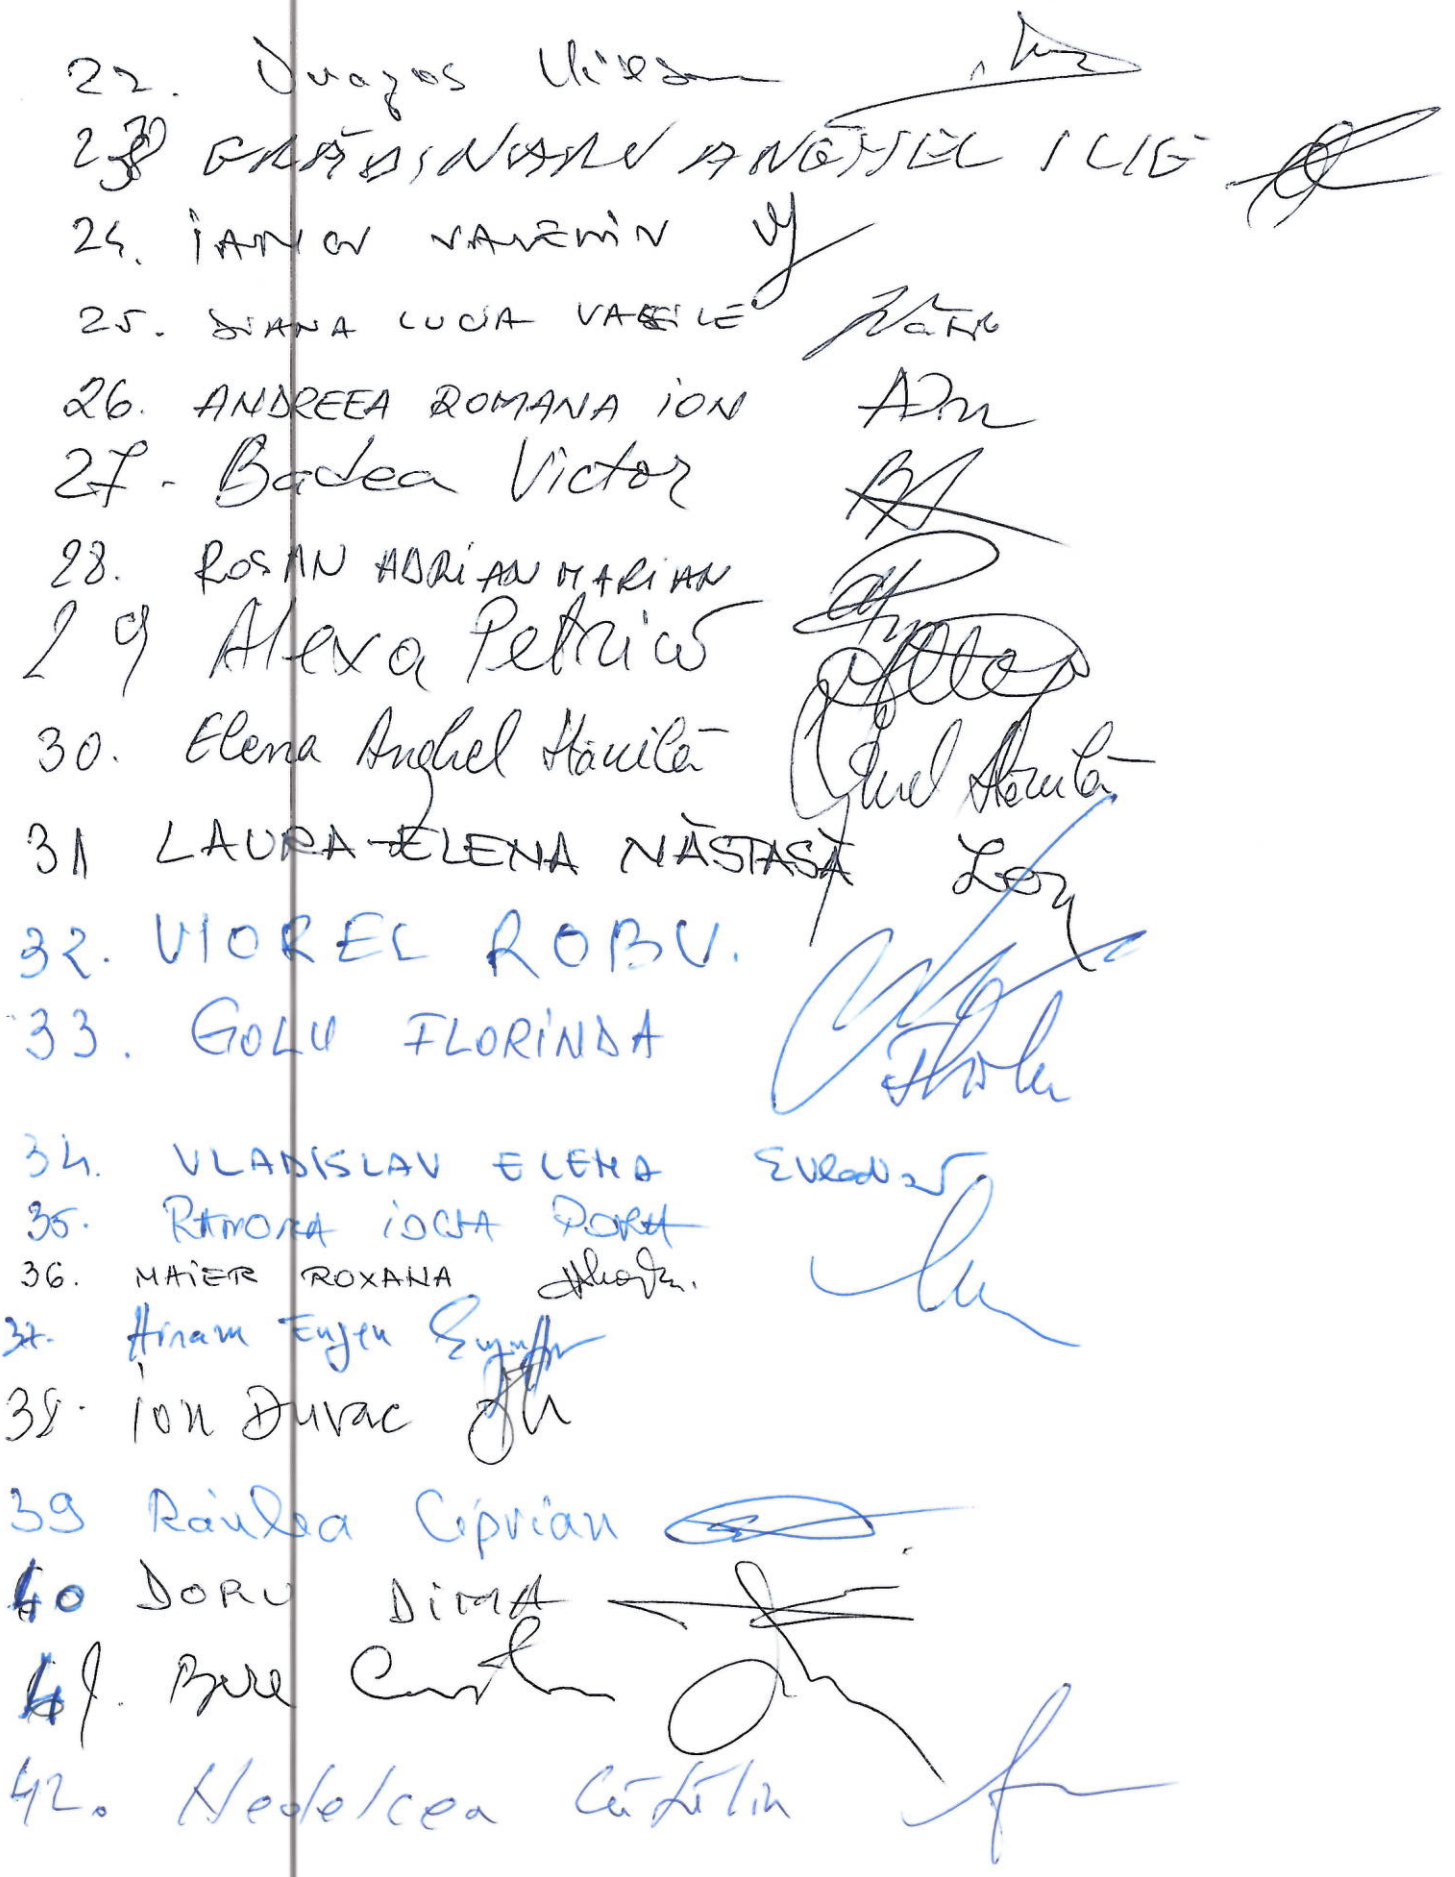 22. Dragoș
23 GRĂDINARU ANGHEL ILIE
24. IANCU VALENTIN
25. DIANA LUCIA VASILE
26. ANDREEA ROMANA ION
27. Badea Victor
28. ROSAN ADRIAN MARIAN
29 Alexa Petrică
30. Elena Anghel Stănilă
31 LAURA-ELENA NĂSTASĂ
32. VIOREL ROBU.
33. GOLU FLORINDA
34. VLADISLAV ELENA
35. RAMONA
36. MAIER ROXANA
37. Avram Eugen
38. Ion Duvac
39 Răulea Ciprian
40 DORU DIMA
41.
42. Nedelcea Cătălin